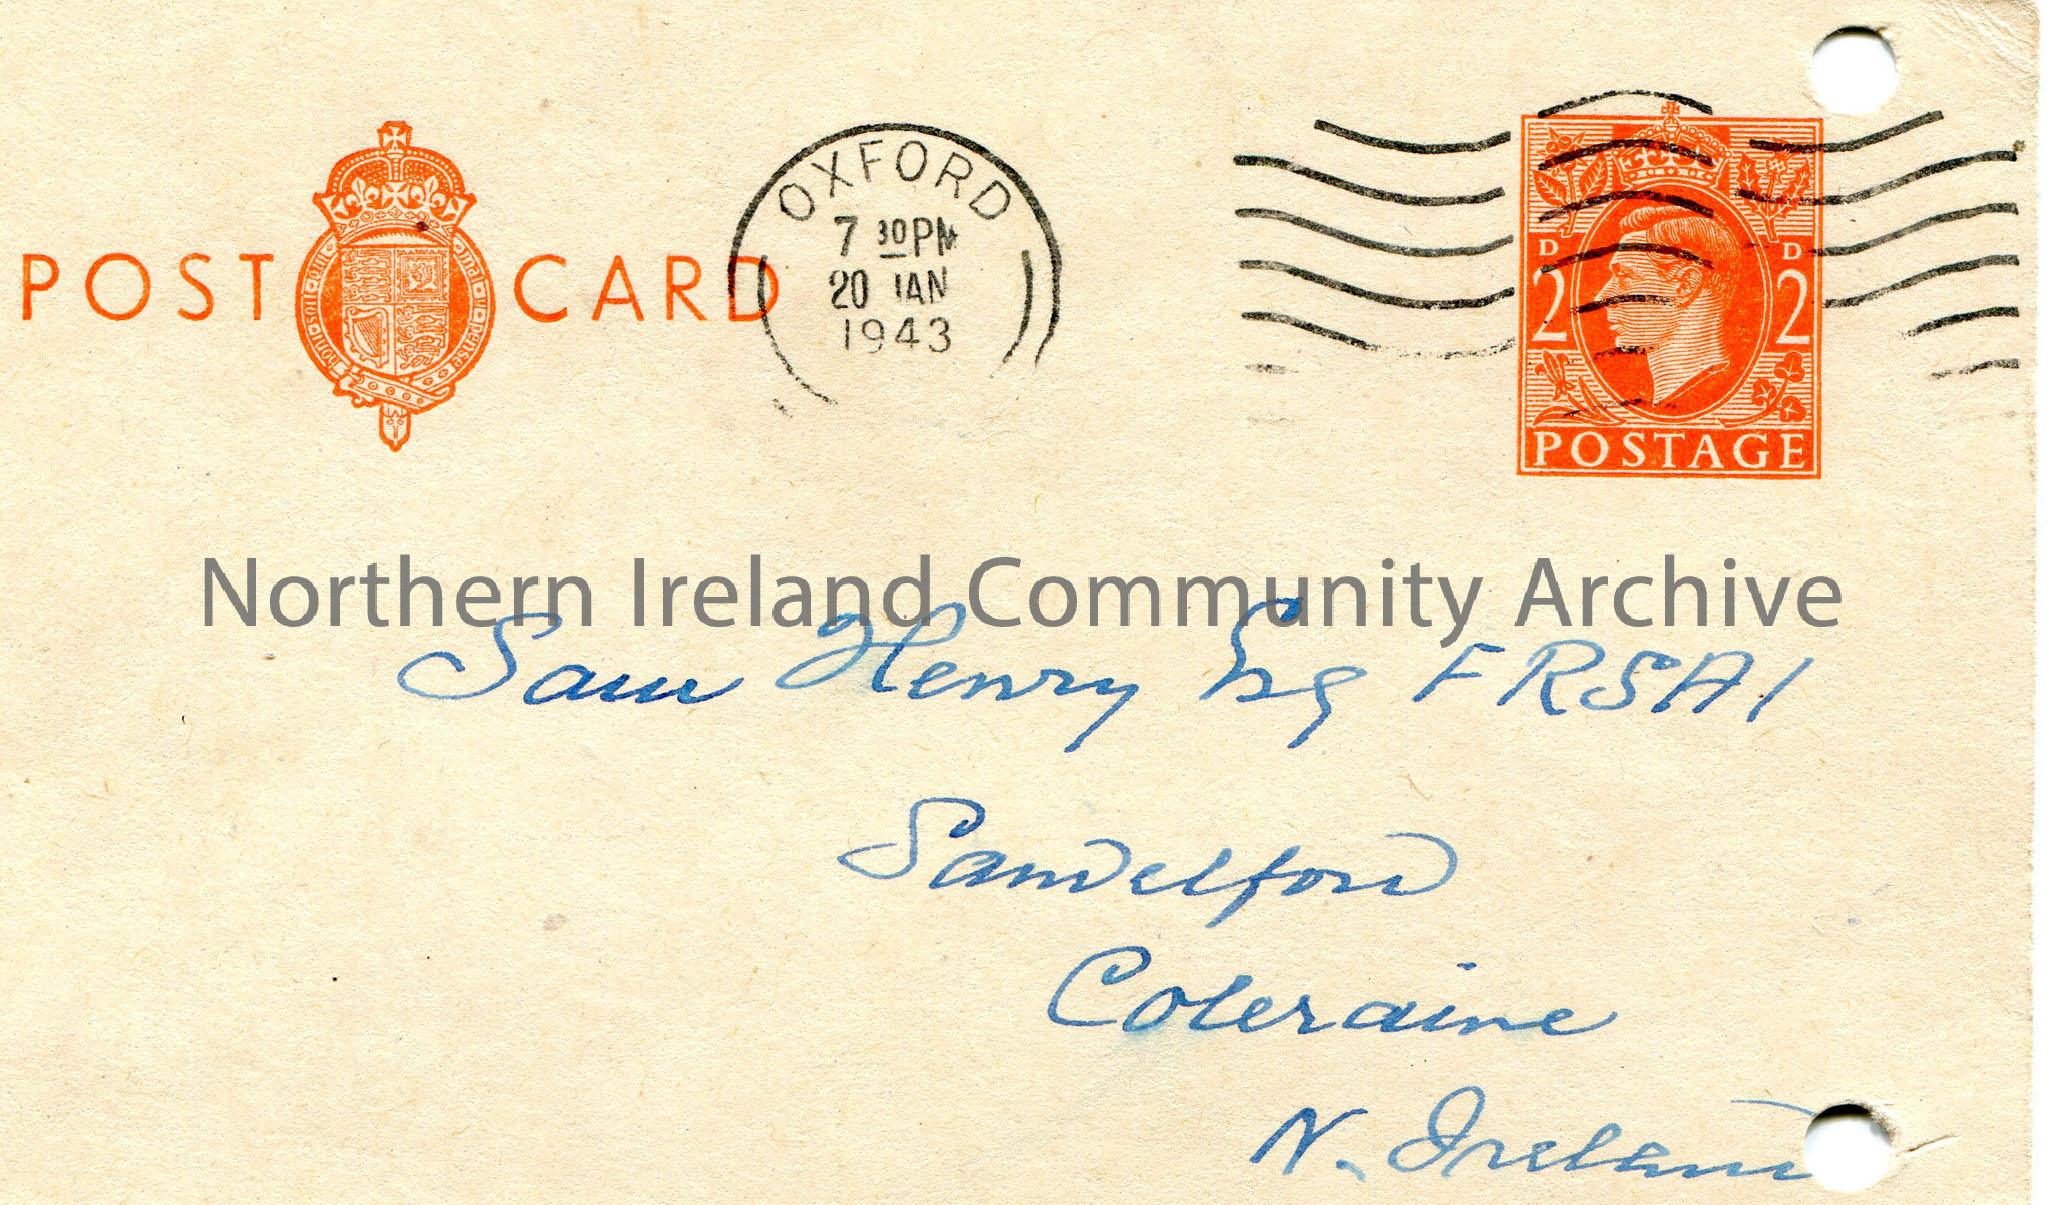 POST CARD
honi soit qui mal y pense
OXFORD
7 30 PM
20 JAN
1943
D D
2 2
POSTAGE
Northern Ireland Community Archive
Sam Henry Esq FRSAI
Sandelford
Coleraine
N. Ireland